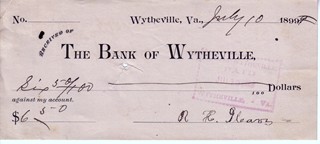 No. Wytheville, Va., July 10 1899
RECEIVED OF
THE BANK OF WYTHEVILLE,
Six 50/100 100 Dollars
against my account.
$6 50 R. H.